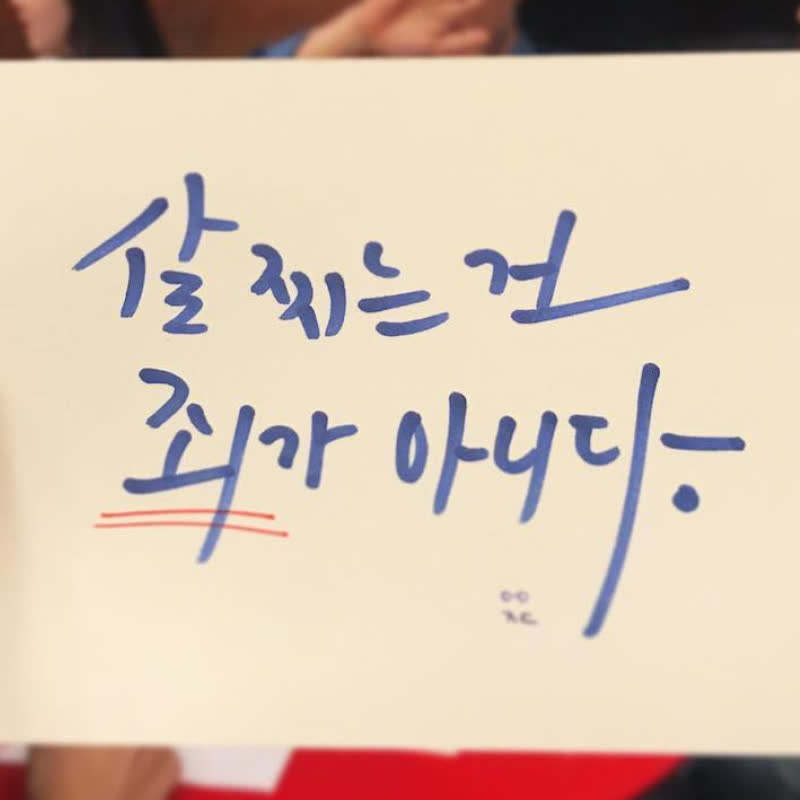 살 찌는 건
죄가 아니다.